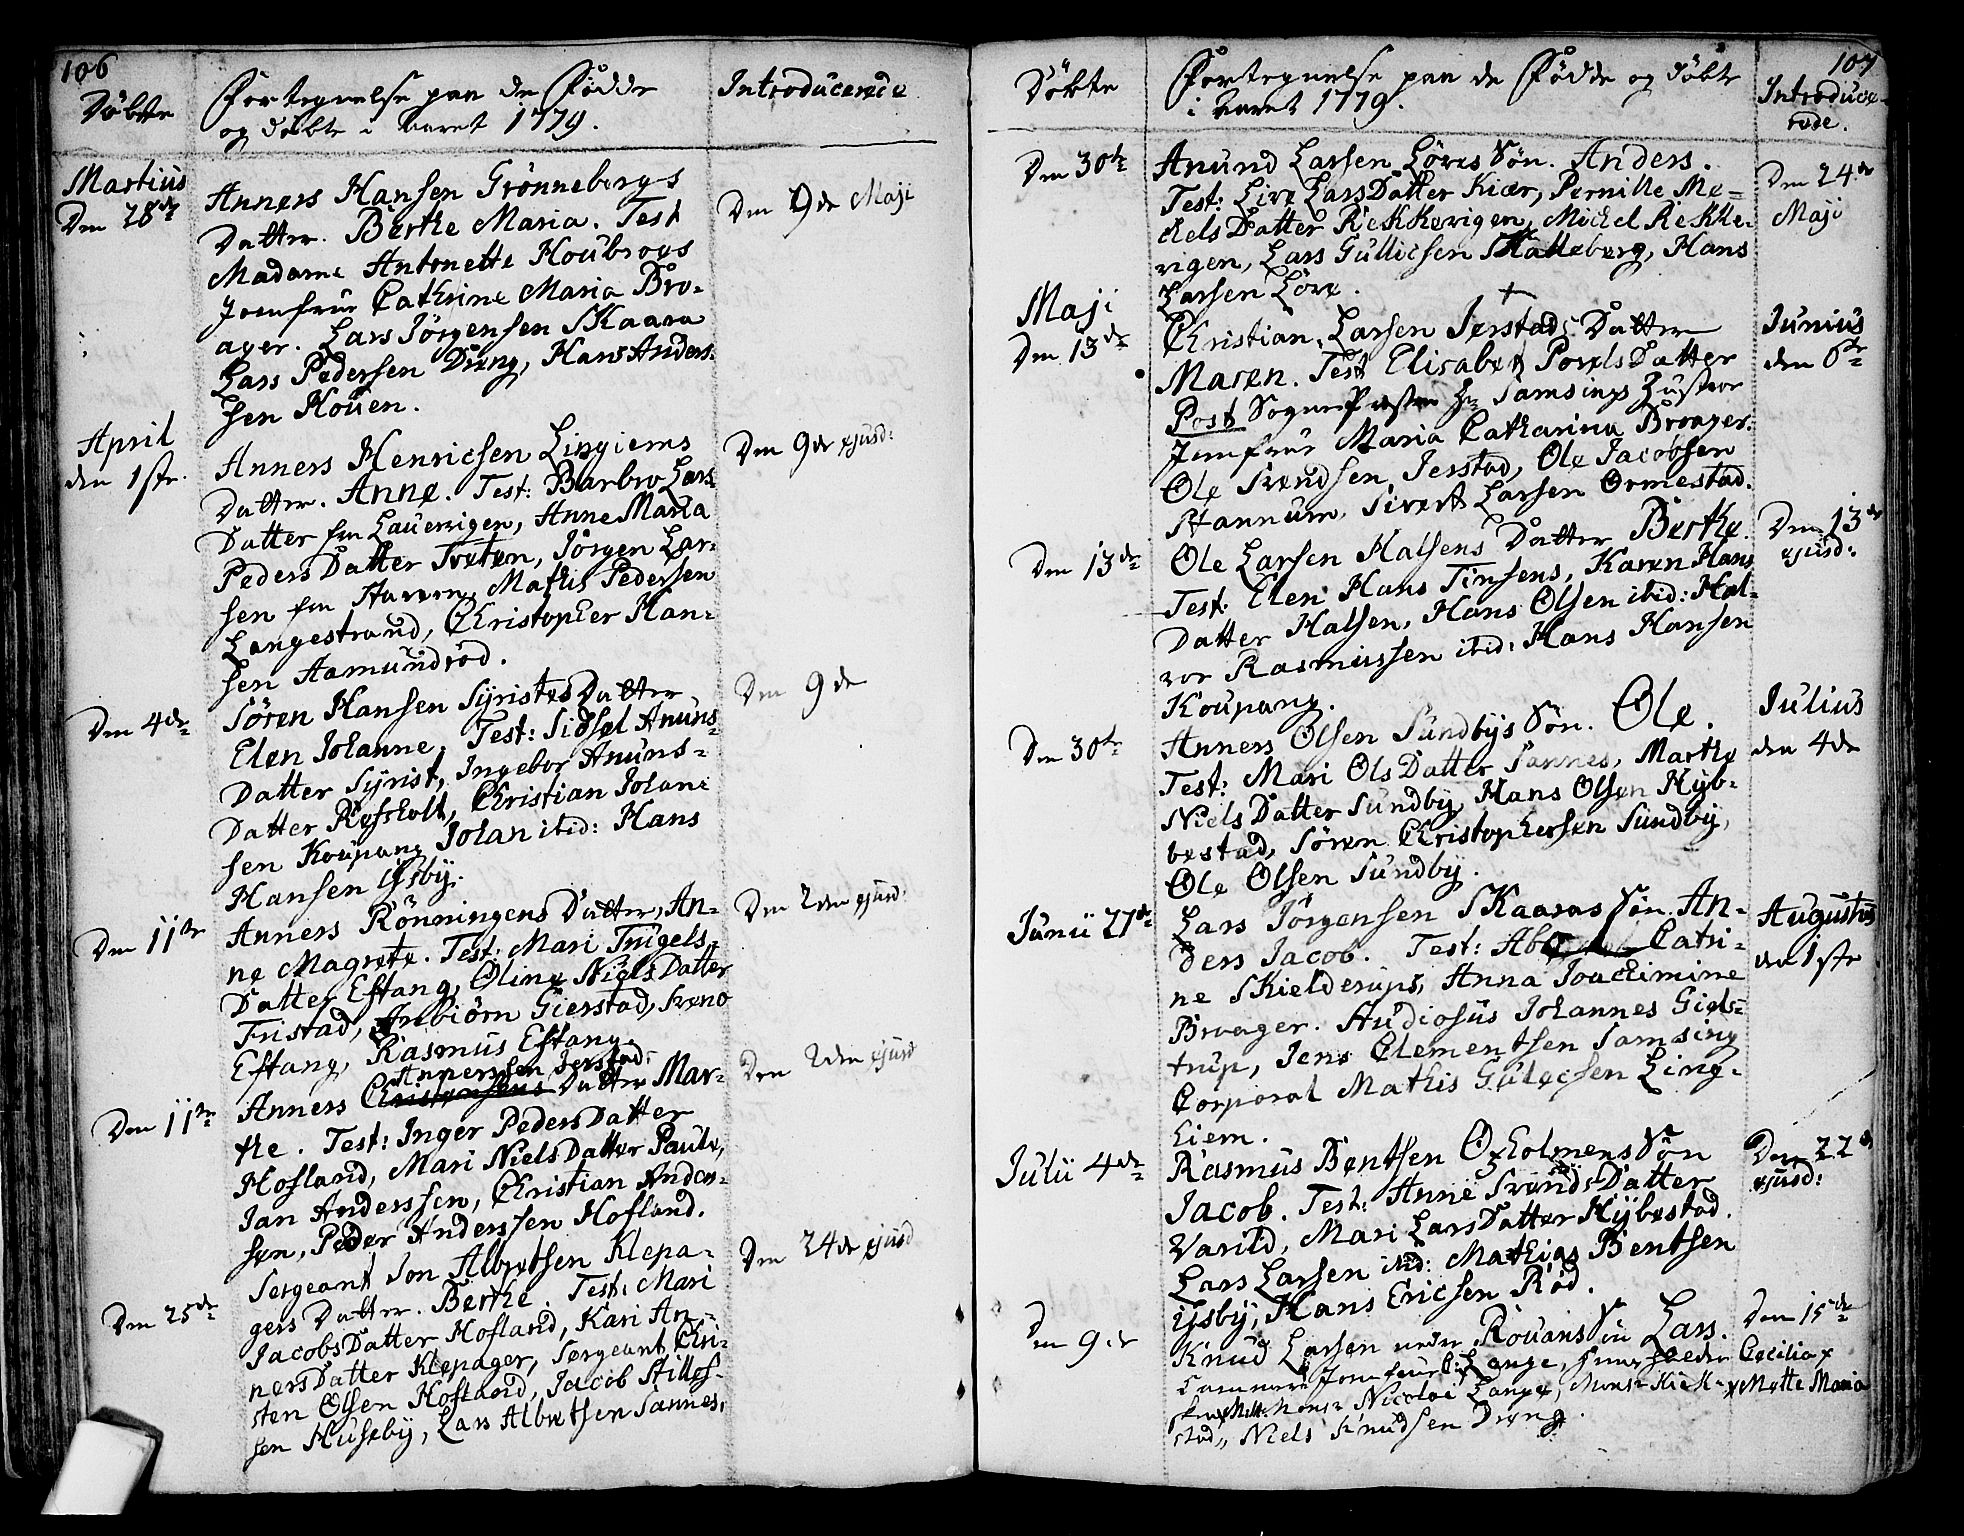 106
Döbte
Fortegnelse paa de Födde
og döbte i Aaret 1779.
Introducerede
Martius
Den 28de
Anners Hansen Grönnebergs
Datter. Berthe Maria. Test
Madame Antonette Houbroes
Jomfrue Cathrine Maria Bro-
ager. Lars Jörgensen Skaara
Lars Pedersen Düng, Hans Anders
sen Houen.
Den 9de Maji
April
den 1ste.
Anners Henricsen Lingiems
Datter. Anne. Test: Barbro Lars
Datter fra Lauervigen, Anne Maria
Peders Datter Treten, Jörgen Lar-
sen fra Haven, Mathis Pedersen
Langestrand, Christopher Han-
sen Aamundröd.
Den 9de ejusd:
Den 4de
Sören Hansen Syristes Datter
Elen Johanne. Test: Sidsel Anuns
Datter Syrist, Ingebor Anuns-
Datter Refsholt, Christian Johane
sen Koupang Johan ibid: Hans
Hansen Ijsby.
Den 9de
Den 11te
Anners Rönningens Datter, An-
ne Magrete. Test: Mari Trügels
Datter Eftang, Oline Niels Datter
Tristad, Anbiörn Gierstad, Svend
Eftang, Rasmus Eftang.
Den 2den ejusd
Den 11te
Anderssen Jerstad:
Anners Christensens Datter Mar-
the. Test: Inger Peders Datter
Hofland, Mari Niels Datter Paule,
Jan Anderssen, Christian Anders-
sen, Peder Anderssen Hofland.
Den 2den ejusd
Den 25de
Sergeant Jon Albretsen Klepa-
gers Datter. Berthe. Test: Mari
Jacobs Datter Hofland, Kari An-
ners Datter Klepager, Sergeant Chri-
sten Olsen Hofland, Jacob Stillef-
sen Huseby, Lars Albretsen Sannes.
Den 24de ejusd
107
Döbte
Fortegnelse paa de Födde og döbte
i Aaret 1779.
Introduce-
rede.
Den 30te
Anund Larsen Löves Sön. Anders.
Test: Live Lars Datter Kiær, Pernille Me-
chels Datter Rekkevigen, Michel Rekke-
vigen, Lars Gullicsen Skalleberg, Hans
Larsen Löve.
Den 24de
Maji
Maji
Den 13de
Christian Larsen Jerstads Datter
Maren. Test Elisabet Povels Datter
Post SognePræsten Hr Samsings Hustroe
Jomfrue Maria Catharina Broager.
Ole Svendsen Jerstad, Ole Jacobsen
Hannum, Sivert Larsen Ormestad.
Junius
den 6te
Den 13de
Ole Larsen Halsens Datter Berthe.
Test: Eleni Hans Tinsens, Karen Hans
Datter Halsen, Hans Olsen ibid: Hal-
vor Rasmussen ibid: Hans Hansen
Koupang.
Den 13de
ejusd:
Den 30te
Anners Olsen Sundbys Sön. Ole.
Test: Mari Ols Datter Sannes, Marthe
Niels Datter Sundby, Hans Olsen Hyb-
bestad, Sören Christophersen Sundby,
Ole Olsen Sundby.
Julius
den 4de
Junii 27de
Lars Jörgensen Skaaras Sön. An-
ders Jacob. Test: Catri-
ne Skielderups, Anna Joachimine
Broager. Studiosus Johannes Giels-
trup, Jens Clementsen Samsing
Corporal Mathis Gulecsen Ling-
hiem.
Augustus
den 1ste
Julii 4de
Rasmus Bentsen Oxholmens Sön
Jacob. Test: Anne Svends Datter
Varild, Mari Lars Datter Hybestad.
Lars Larsen ibid: Mathias Bentsen
Ijsby, Hans Ericsen Röd.
Den 22de
ejusd:
Den 9de
Knud Larsen Rouans Sön Lars.
Jomfrue Lange,
Nicolai Lange, Mons:
stad, Niels Knudsen Dreng.
Den 15de
Cecilia x
x Mette Maria